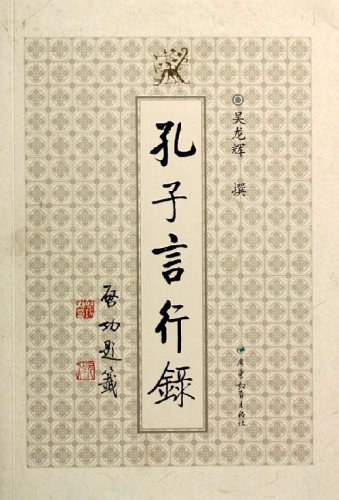 吴龙辉 撰
孔子言行錄
启功题籤
广东教育出版社